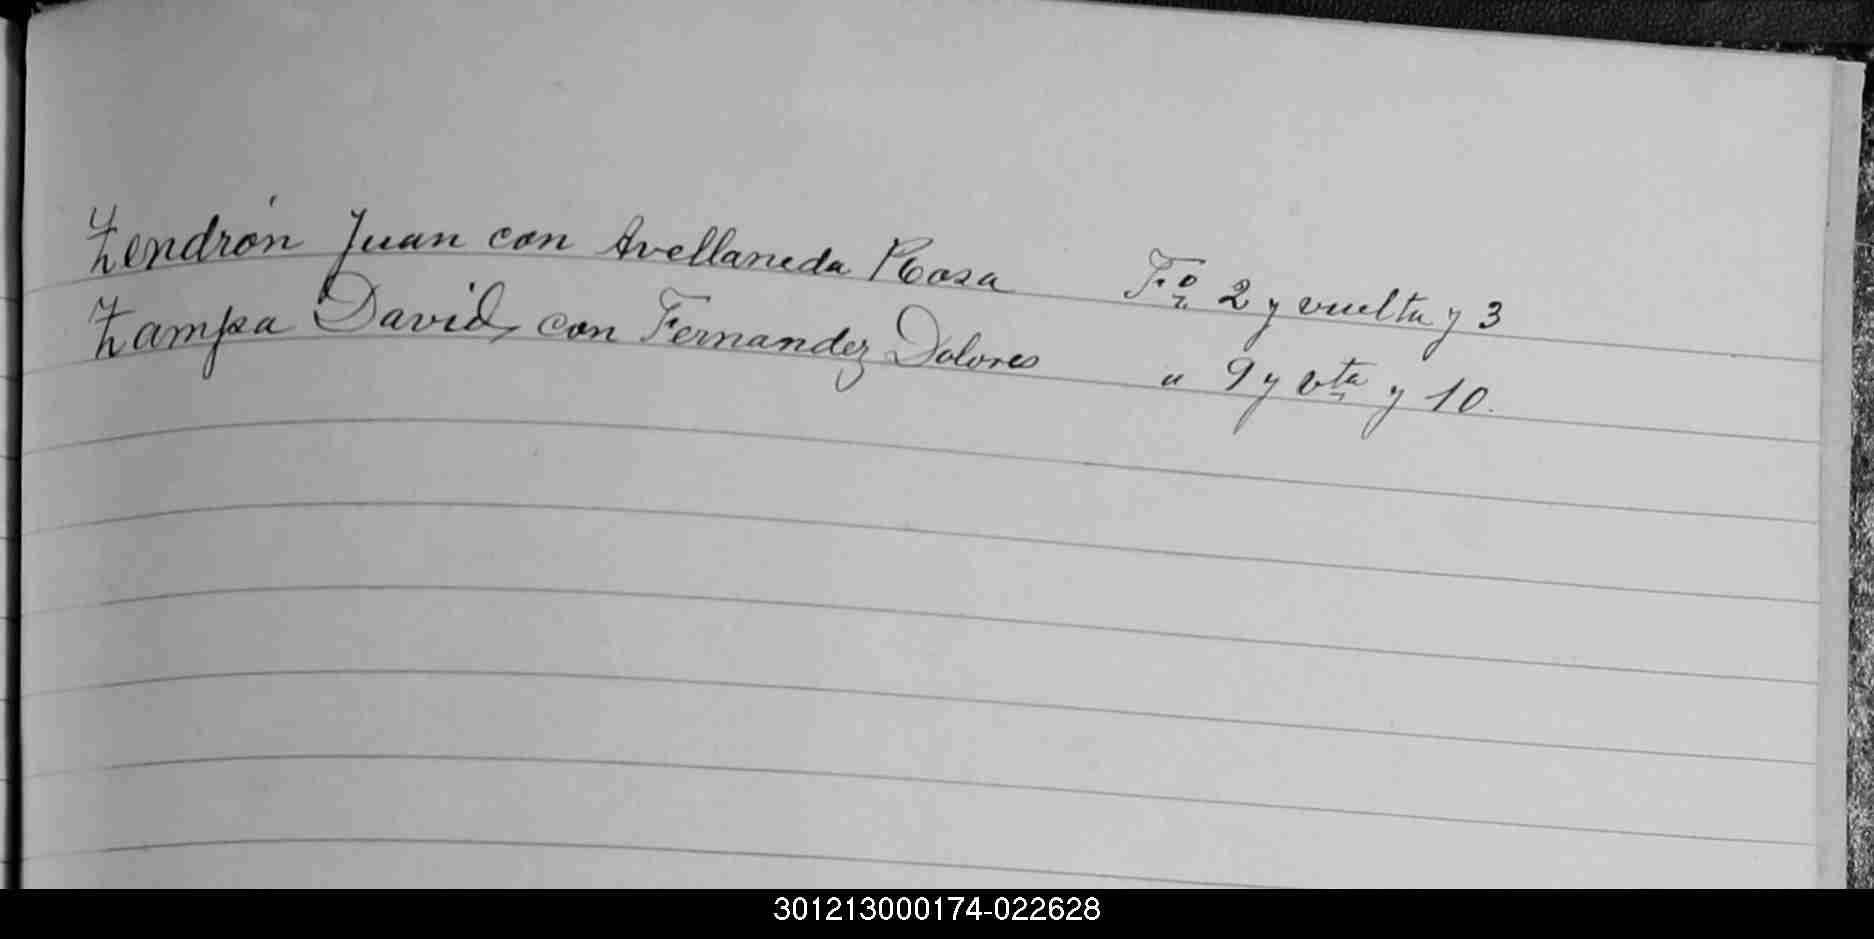 Zendrón Juan con Avellaneda Rosa Fº 2 y vuelta y 3
Zampa David, con Fernandez Dolores " 9 y vta y 10.
301213000174-022628